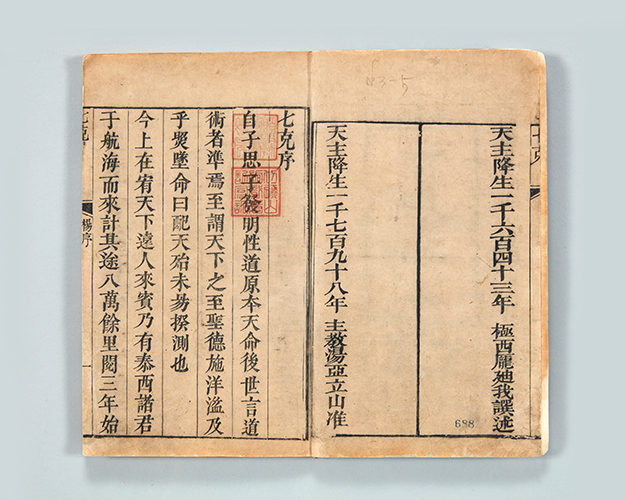 天主降生一千六百四十三年 極西龎迪我譔述
天主降生一千七百九十八年 主教湯亞立山准
688
七克序
自子思子發明性道原夲天命後世言道
術者準焉至謂天下之至聖德施洋溢及
乎㷟墜命曰配天殆未易揆測也
今上在宥天下遠人來賓乃有泰西諸君
于航海而來計其途八萬餘里閱三年始
楊序
一